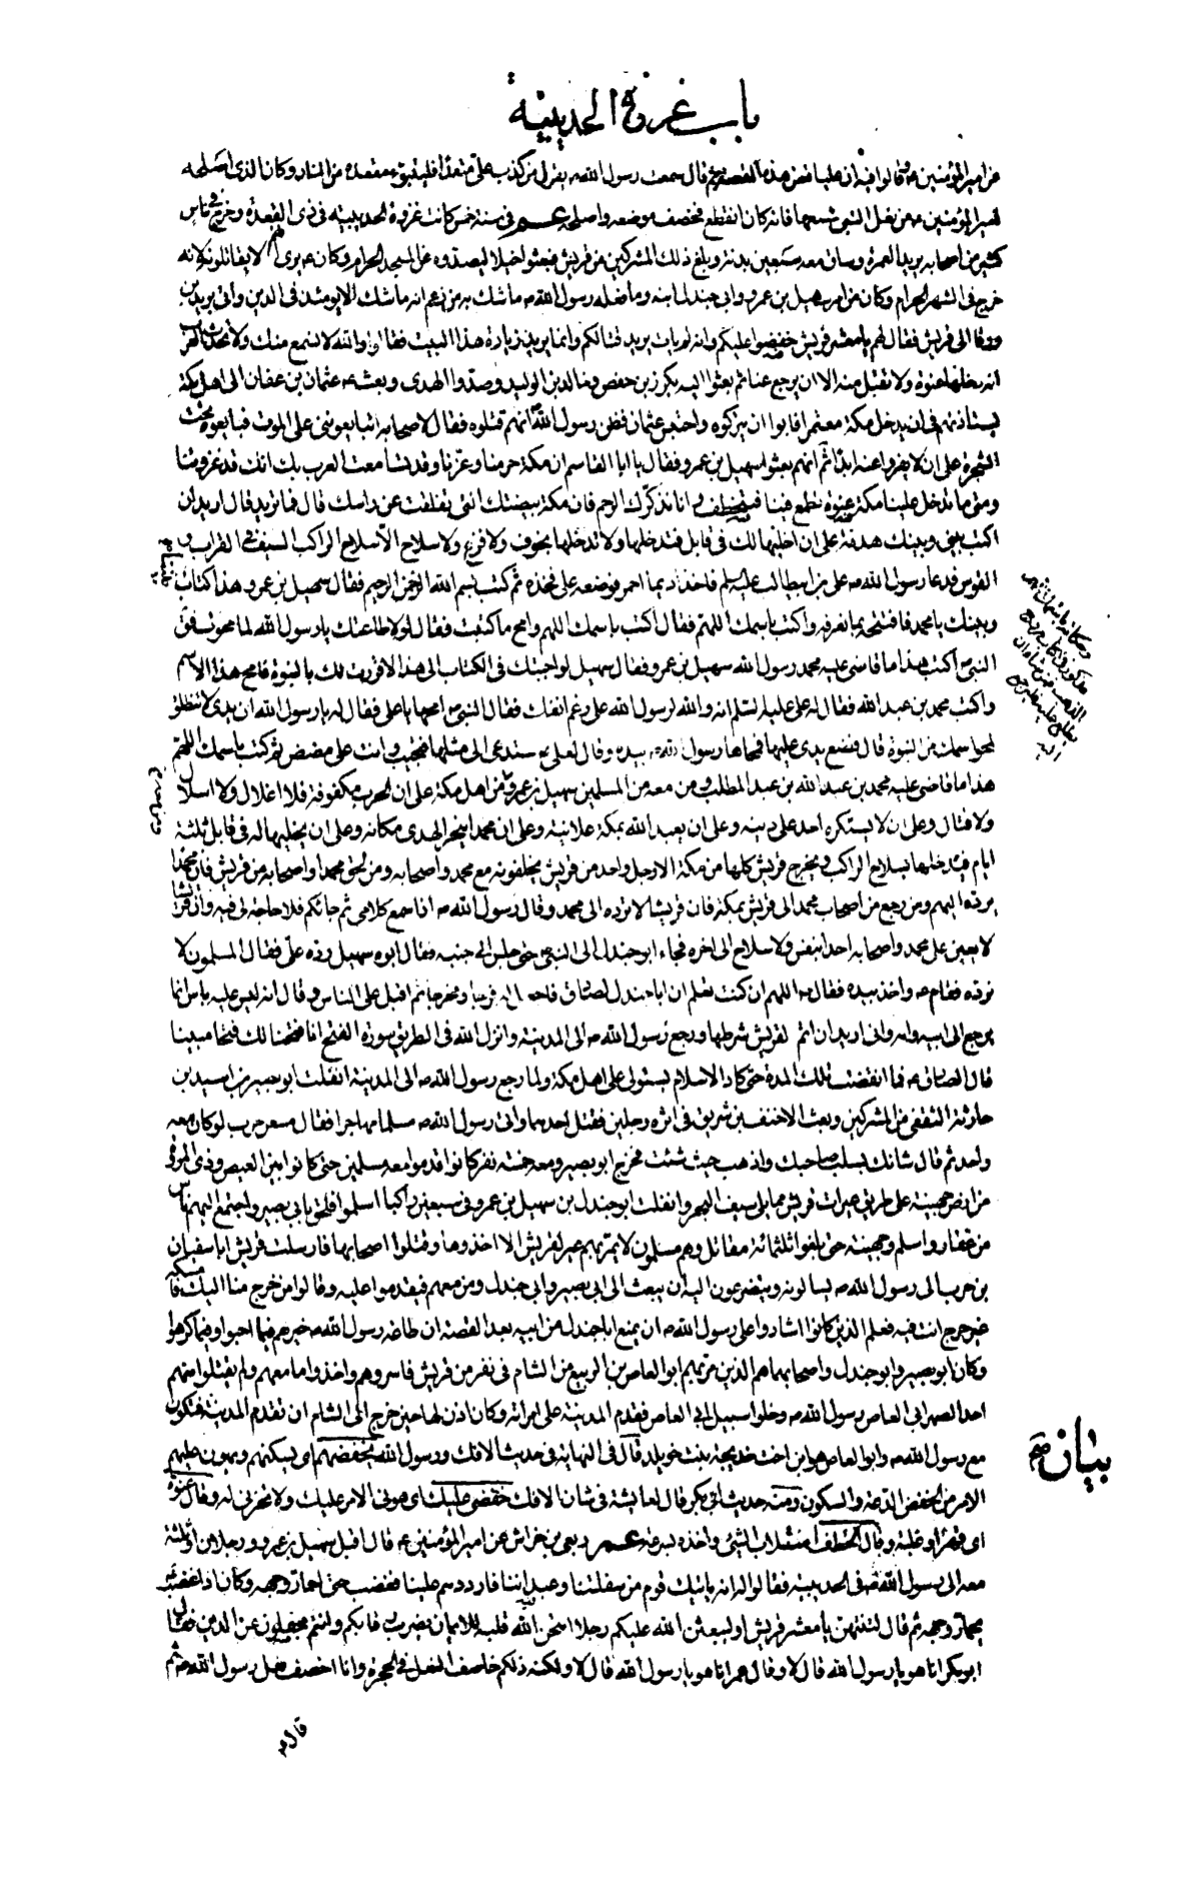 باب غزوة الحديبية
عن امير المؤمنين ع قالوا فيه ان عليا قص هذه القصة ثم قال سمعت رسول الله ص يقول من كذب على متعمدا فليتبوء مقعده من النار وكان الذى اصلحه
امير المؤمنين ع من نعل النبى شسعها فانه كان انقطع فخصف موضعه واصلحه عم فى سنة خمس كانت غزوة الحديبية فى ذى القعدة وخرج فى ناس
كثير من اصحابه يريد العمرة وساق معه سبعين بدنة وبلغ ذلك المشركين من قريش فبعثوا خيلا ليصدوه عن المسجد الحرام وكان ص يرى انهم لا يقاتلونه لانه
خرج فى الشهر الحرام وكان من امر سهيل بن عمرو وابى جندل ابنه وما فعله رسول الله ص ما شك به من زعم انه ما شك الا يومئذ فى الدين واتى بديل بن
ورقا الى قريش فقال لهم يا معشر قريش خفضوا عليكم وانه لم يات يريد قتالكم وانما يريد زيارة هذا البيت فقالوا والله لا نسمع منك ولا تحدث العرب
انه دخلها عنوة ولا نقبل منه الا ان يرجع عنا ثم بعثوا اليه بكرز بن حفص وخالد بن الوليد وصدوا الهدى وبعث ص عثمان بن عفان الى اهل مكة
يستاذنهم فى ان يدخل مكة معتمرا فابوا ان يتركوه واحتبس عثمان فظن رسول الله ص انهم قتلوه فقال لاصحابه اتبايعوننى على الموت فبايعوه تحت
الشجرة على ان لا يفروا عنه ابدا ثم انهم بعثوا سهيل بن عمرو فقال يا ابا القاسم ان مكة حرمنا وعزنا وقد تسامعت العرب بك انك قد غزوتنا
ومتى ما تدخل علينا مكة عنوة نطمع فينا فنتخطف وانا نذكرك الرحم فان مكة بيضتك التى تفلقت عن راسك قال فما تريد قال اريد ان
اكتب بينى وبينك هدنة على ان اخليها لك فى قابل فتدخلها ولا تدخلها بخوف ولا فزع ولا سلاح الا سلاح الراكب السيف فى القراب و
القوس فدعا رسول الله ص على بن ابيطالب عليه السلم فاخذ اديما احمر فوضعه على فخذه ثم كتب بسم الله الرحمن الرحيم فقال سهيل بن عمرو هذا كتاب بيننا
وبينك يا محمد فافتتحه بما نعرفه واكتب باسمك اللهم فقال اكتب باسمك اللهم وامح ما كتبت فقال لولا طاعتك يا رسول الله لما محوت فقال
النبى ص اكتب هذا ما قاضى عليه محمد رسول الله سهيل بن عمرو فقال سهيل لو اجبتك فى الكتاب الى هذا لاقررت لك بالنبوة فامح هذا الاسم
واكتب محمد بن عبد الله فقال له على عليه السلم انه والله لرسول الله على رغم انفك فقال النبى ص امحها يا على فقال له يا رسول الله ان يدى لا تنطلق
لمحو اسمك من النبوة قال فضع يدى عليها فمحاها رسول الله ص بيده وقال لعلى ع ستدعى الى مثلها فتجيب وانت على مضض ثم كتب باسمك اللهم
هذا ما قاضى عليه محمد بن عبد الله بن عبد المطلب ومن معه من المسلمين سهيل بن عمرو ومن معه من اهل مكة على ان الحرب مكفوفة فلا اغلال ولا اسلال
ولا قتال وعلى ان لا يستكره احد على دينه وعلى ان يعبد الله بمكة علانية وعلى ان محمدا ينحر الهدى مكانه وعلى ان يخليها له فى قابل ثلثة
ايام فيدخلها بسلاح الراكب ويخرج قريش كلها من مكة الا رجل واحد من قريش يخلفونه مع محمد واصحابه ومن لحق محمدا واصحابه من قريش فان محمدا
يرده اليهم ومن رجع من اصحاب محمد الى قريش بمكة فان قريشا لا ترده الى محمد وقال رسول الله ص اذا سمع كلامى ثم جائكم فلا حاجة لى فيه وان قريشا
لا يعين على محمد واصحابه احدا بنفس ولا سلاح الى اخره فجاء ابو جندل الى النبى ص حتى جلس الى جنبه فقال ابوه سهيل رده على فقال المسلمون لا
نرده فقام ص واخذ بيده فقال ص اللهم ان كنت تعلم ان ابا جندل لصادق فاجعل له فرجا ومخرجا ثم اقبل على الناس وقال انه ليس عليه باس انما
يرجع الى ابيه وامه وانى اريد ان اتم لقريش شرطها ورجع رسول الله ص الى المدينة وانزل الله فى الطريق سورة الفتح انا فتحنا لك فتحا مبينا
قال الصادق ع فما انقضت تلك المدة حتى كاد الاسلام يستولى على اهل مكة ولما رجع رسول الله ص الى المدينة انفلت ابو بصير بن اسيد بن
حارثة الثقفى من المشركين وبعث الاخنس بن شريق فى اثره رجلين فقتل احدهما واتى رسول الله ص مسلما مهاجرا فقال مسعر حرب لو كان معه
واحد ثم قال شانك بسلب صاحبك واذهب حيث شئت فخرج ابو بصير ومعه خمسة نفر كانوا قدموا معه مسلمين حتى كانوا بين العيص وذى المروة
من ارض جهينة على طريق عيرات قريش مما يلى سيف البحر وانفلت ابو جندل بن سهيل بن عمرو فى سبعين راكبا اسلموا فلحق بابى بصير واجتمع اليهم ناس
من غفار واسلم وجهينة حتى بلغوا ثلثمائة مقاتل وهم مسلمون لا يمر بهم عير لقريش الا اخذوها وقتلوا اصحابها فارسلت قريش ابا سفيان
بن حرب الى رسول الله ص يسالونه ويتضرعون اليه ان يبعث الى ابى بصير وابى جندل ومن معهم فيقدموا عليه وقالوا من خرج منا اليك فامسكه
غير حرج انت فيه فعلم الذين كانوا اشاروا على رسول الله ص ان يمنع ابا جندل من ابيه بعد القصة ان طاعة رسول الله ص خير لهم فيما احبوا وفيما كرهوا
وكان ابو بصير وابو جندل واصحابهما هم الذين مر بهم ابو العاص بن الربيع من الشام فى نفر من قريش فاسروهم واخذوا ما معهم ولم يقتلوا منهم
احدا لصهر ابى العاص رسول الله ص وخلوا سبيل ابى العاص فقدم المدينة على امراته وكان اذن لها حين خرج الى الشام ان تقدم المدينة فتكون
مع رسول الله ص وابو العاص هو ابن اخت خديجة بنت خويلد قال فى النهاية فى حديث الافك ورسول الله يخفضهم اى يسكنهم ويهون عليهم
الامر من الخفض الدعة والسكون ومنه حديث ابى بكر قال لعايشة فى شان الافك خفضى عليك اى هونى الامر عليك ولا تحزنى له وقال عنوة
اى قهرا وغلبة وقال الخطف استلاب الشئ واخذه بسرعة عم ربعى بن خراش عن امير المؤمنين ع قال اقبل سهيل بن عمرو ورجلان او ثلثة
معه الى رسول الله ص فى الحديبية فقالوا له انه ياتيك قوم من سفلتنا وعبداننا فارددهم علينا فغضب حتى احمار وجهه وكان اذا غضب ص
يحمار وجهه ثم قال لتنتهن يا معشر قريش او ليبعثن الله عليكم رجلا امتحن الله قلبه للايمان يضرب رقابكم وانتم مجفلون عن الدين فقال
ابو بكر انا هو يا رسول الله قال لا وقال عمر انا هو يا رسول الله قال لا ولكنه ذلكم خاصف النعل فى الحجرة وانا اخصف نعل رسول الله ص ثم
بيان
قال